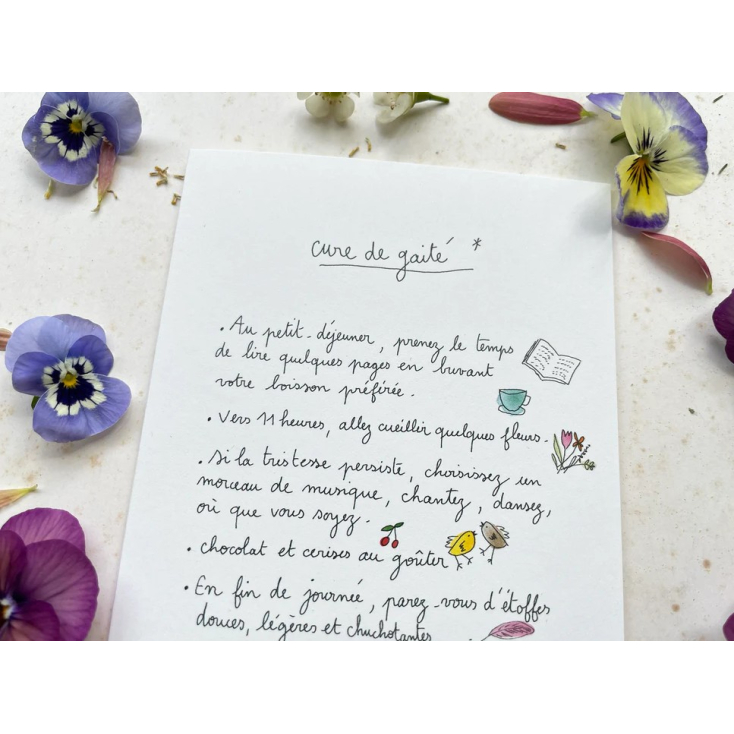 cure de gaité *
• Au petit-déjeuner, prenez le temps
de lire quelques pages en buvant
votre boisson préférée.
• Vers 11 heures, allez cueillir quelques fleurs.
• Si la tristesse persiste, choisissez un
morceau de musique, chantez, dansez,
où que vous soyez.
• chocolat et cerises au goûter
• En fin de journée, parez-vous d'étoffes
douces, légères et chuchotantes